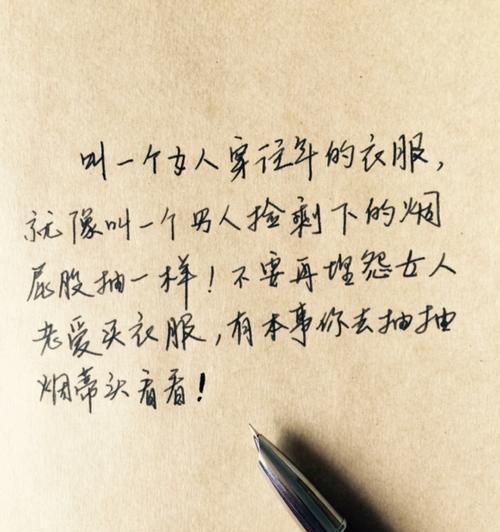 叫一个女人穿往年的衣服，
就像叫一个男人捡剩下的烟
屁股抽一样！不要再埋怨女人
老爱买衣服，有本事你去抽抽
烟蒂头看看！